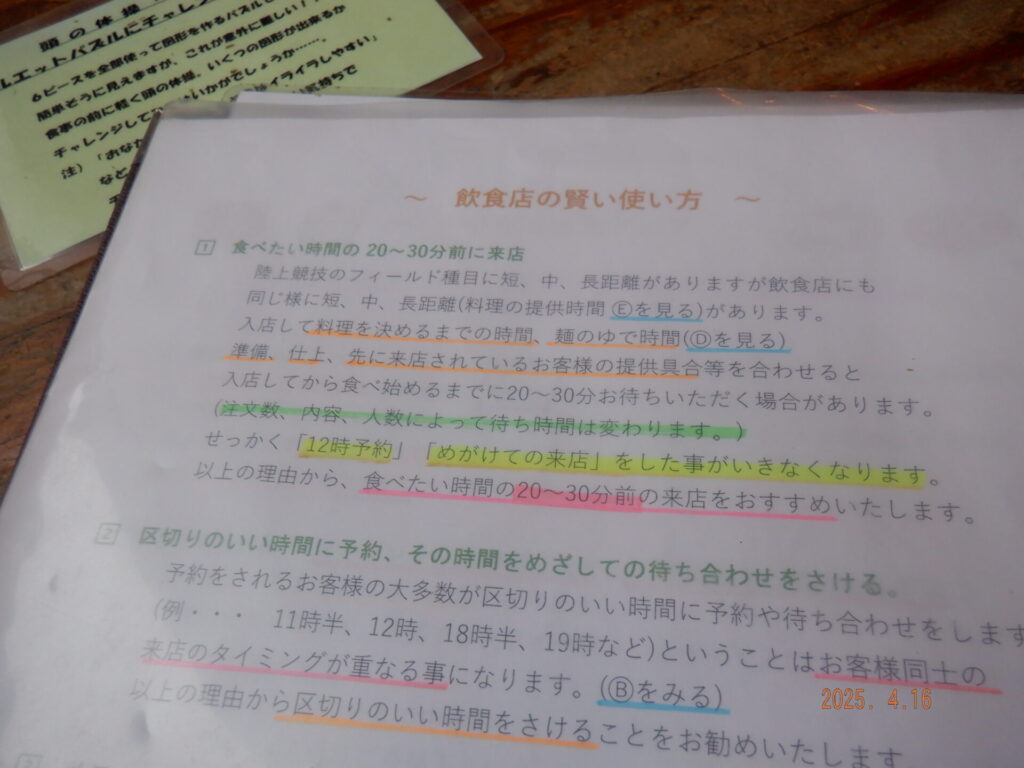 頭の体操
ルエットパズルにチャレン
6ピースを全部使って図形を作るパズル
簡単そうに見えますが、これが意外に難しい！
食事の前に軽く頭の体操、いくつの図形が出来るか
チャレンジして いかがでしょうか……。
注）「おな イライラしやすい」
など 気持ちで
～　飲食店の賢い使い方　～
1 食べたい時間の 20～30分前に来店
陸上競技のフィールド種目に短、中、長距離がありますが飲食店にも
同じ様に短、中、長距離(料理の提供時間 Ⓔを見る)があります。
入店して料理を決めるまでの時間、麺のゆで時間(Ⓓを見る)
準備、仕上、先に来店されているお客様の提供具合等を合わせると
入店してから食べ始めるまでに20～30分お待ちいただく場合があります。
(注文数、内容、人数によって待ち時間は変わります。)
せっかく「12時予約」「めがけての来店」をした事がいきなくなります。
以上の理由から、食べたい時間の20～30分前の来店をおすすめいたします。
2 区切りのいい時間に予約、その時間をめざしての待ち合わせをさける。
予約をされるお客様の大多数が区切りのいい時間に予約や待ち合わせをします
(例・・・　11時半、12時、18時半、19時など)ということはお客様同士の
来店のタイミングが重なる事になります。(Ⓑをみる)
以上の理由から区切りのいい時間をさけることをお勧めいたします
2025. 4.16